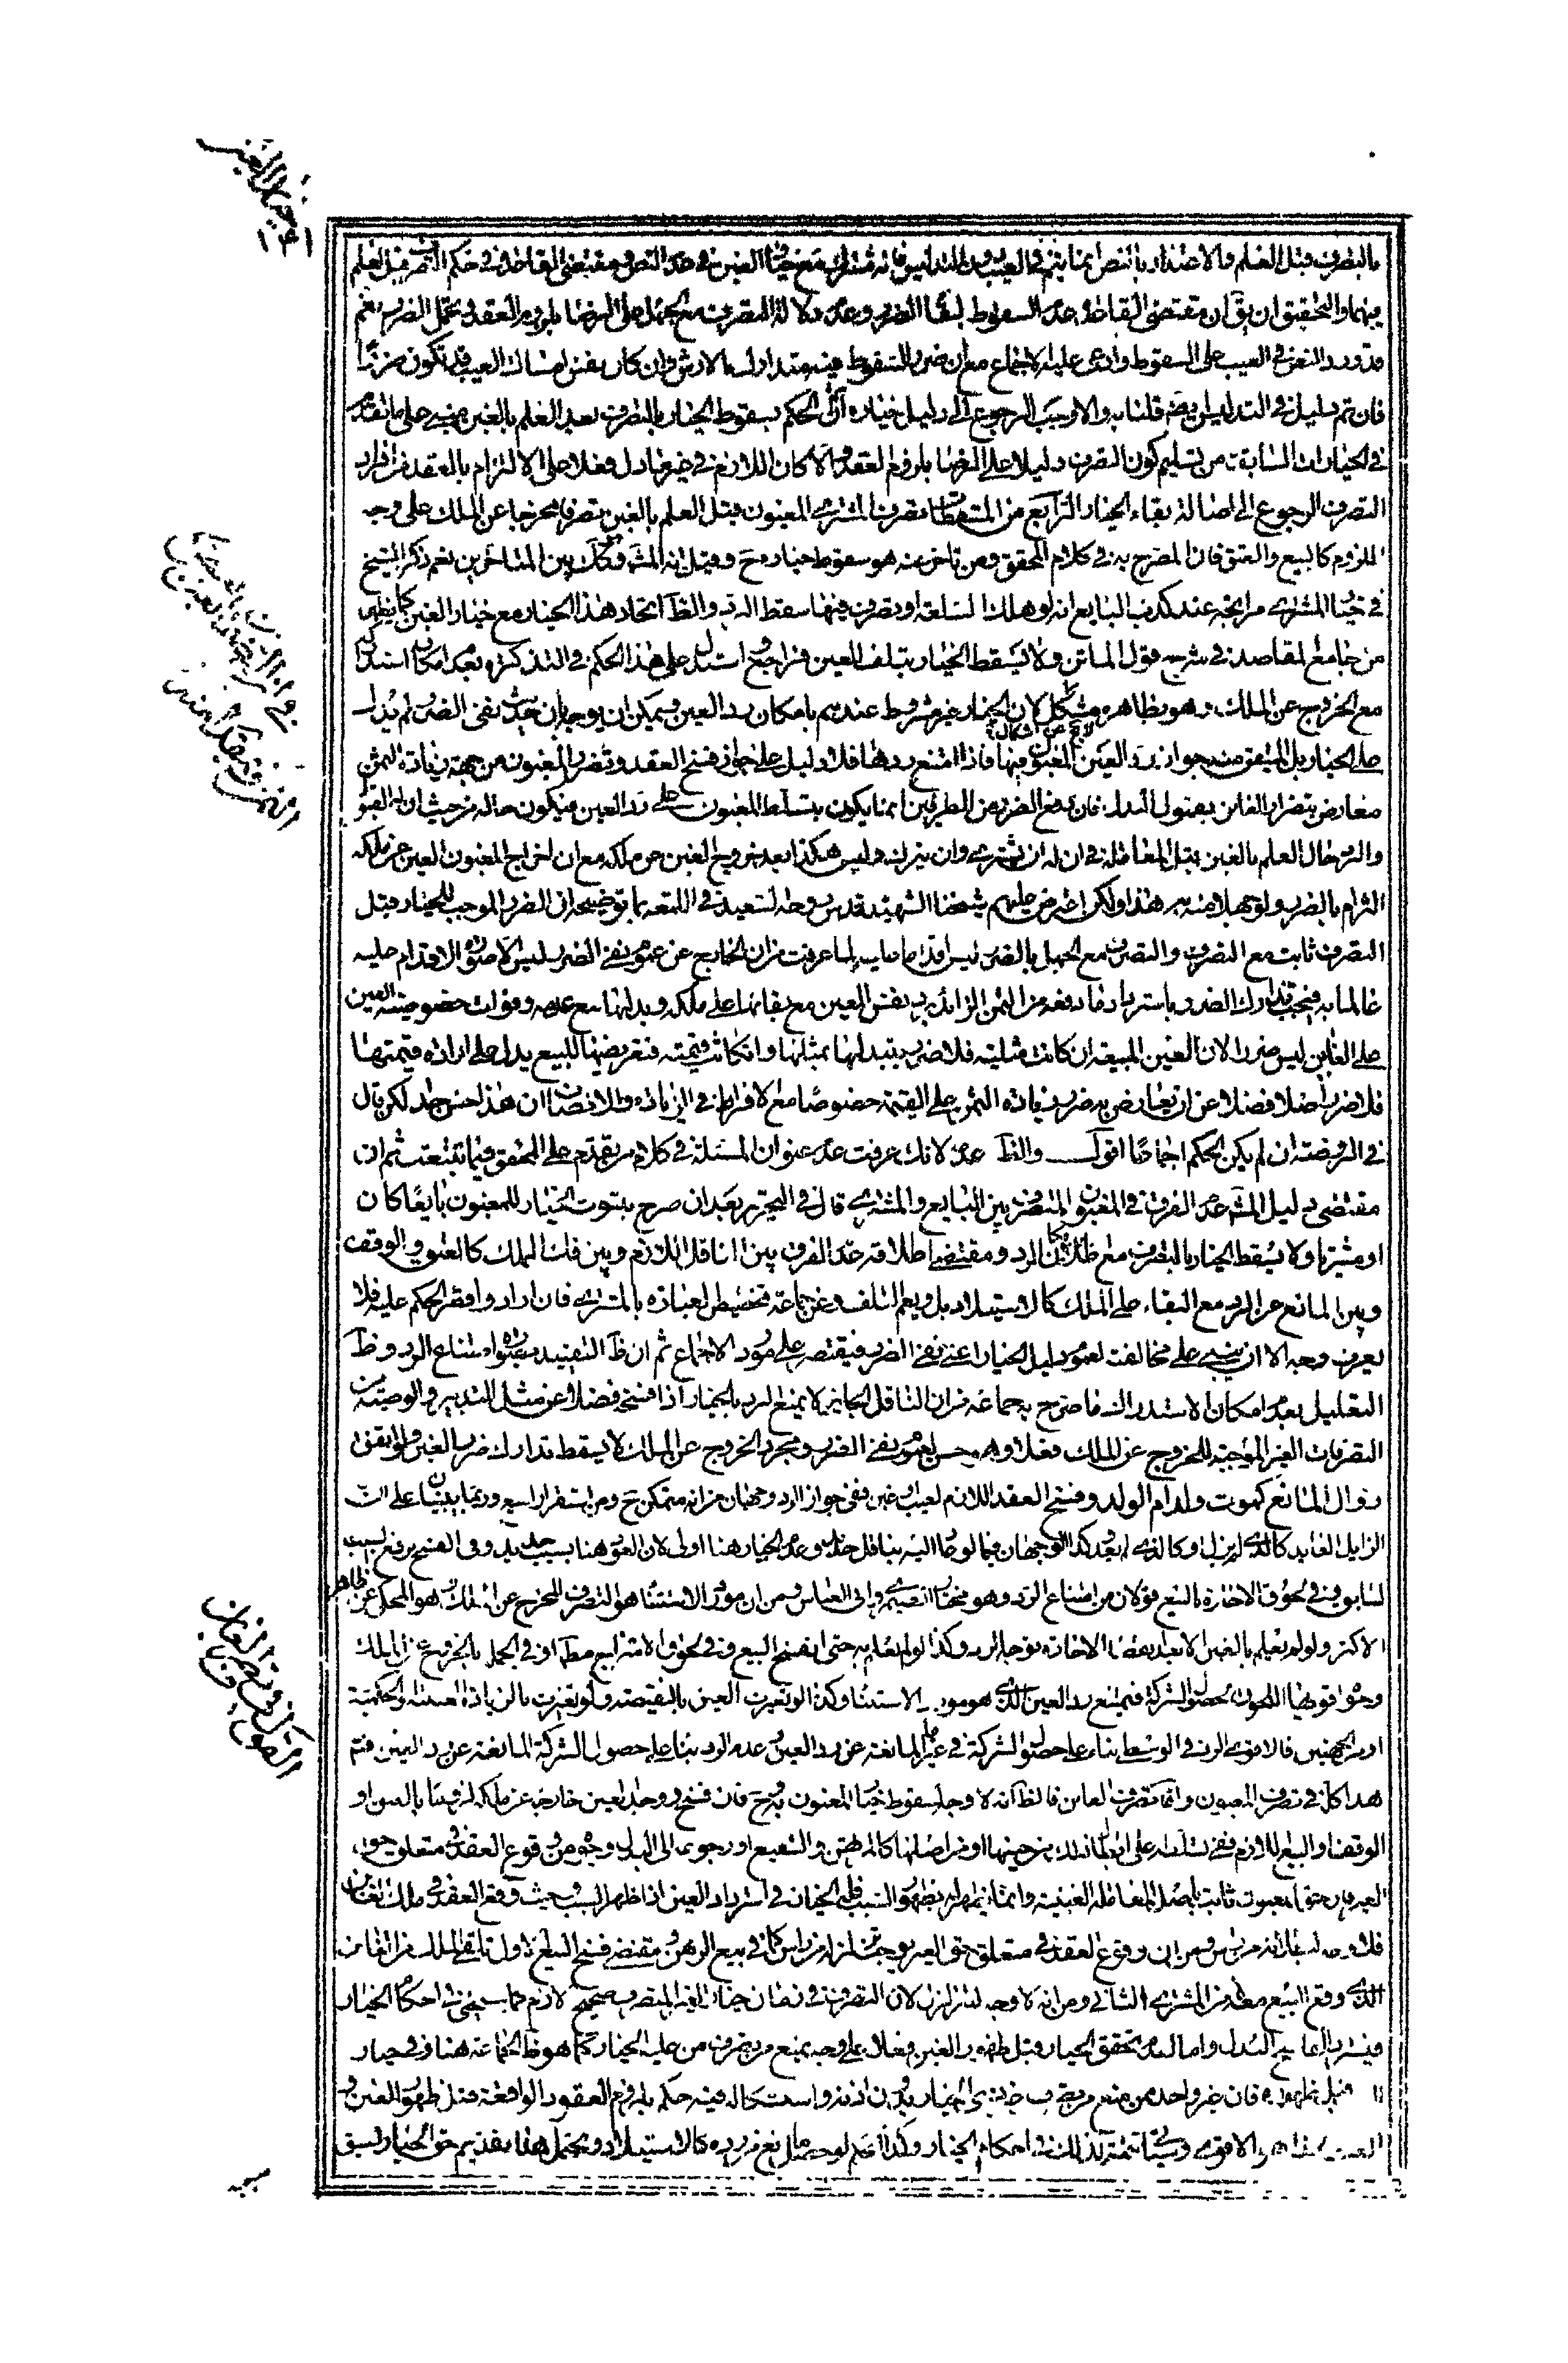 بالتصرف قبل العلم والاعتذار بالنص انما يتم في العيب دون التدليس فانه مشترك مع خيار الغبن في عدم النص ومقتضى القاعدة في حكم التصرف قبل العلم
فيهما والتحقيق ان يق ان مقتضى القاعدة عدم السقوط لبقاء الضرر وعدم دلالة التصرف مع الجهل على الرضا بلزوم العقد وتحمل الضرر نعم
قد ورد النص في العيب على السقوط وادعى عليه الاجماع مع ان ضرر السقوط فيه متدارك بالارش وان كان نفس امساك العيب قد يكون ضررا
فان تم دليل في التدليس ايضا قلنا به والا وجب الرجوع الى دليل خياره ثم ان الحكم بسقوط الخيار بالتصرف بعد العلم بالغبن مبنى على ما تقدم
في الخيارات السابقة من تسليم كون التصرف دليلا على الرضا بلزوم العقد والا كان اللازم في غير ما دل فعلا على الالتزام بالعقد من افراد
التصرف الرجوع الى اصالة بقاء الخيار الرابع من المسقطات تصرف المشترى المغبون قبل العلم بالغبن تصرفا مخرجا عن الملك على وجه
اللزوم كالبيع والعتق فان المصرح به في كلام المحقق ومن تاخر عنه هو سقوط خياره ح وقيل انه المشهور وكك بين المتاخرين نعم ذكر الشيخ
في خيار المشترى مرابحة عند كذب البايع انه لو هلك السلعة او تصرف فيها سقط الرد والظ اتحاد هذا الخيار مع خيار الغبن كما يظهر
من جامع المقاصد في شرح قول الماتن ولا يسقط الخيار بتلف العين فراجع استدل على هذا الحكم في التذكرة بعدم امكان استدراكه
مع الخروج عن الملك وهو بظاهره مشكل لان الخيار غير مشروط عندهم بامكان رد العين ويمكن ان يوجه بان حديث نفى الضرر لم يدل
على الخيار بل المتيقن منه جواز رد العين المغبون فيها فاذا امتنع ردها فلا دليل على جواز فسخ العقد وتضرر المغبون من جهة زيادة الثمن
معارض بتضرر الغابن بقبول البدل فان دفع الضرر من الطرفين انما يكون بتسلط المغبون على رد العين فيكون حاله من حيث ان له القبول
والرد حال العلم بالغبن قبل المعاملة في ان له ان يشترى وان يترك وليس هكذا بعد خروج العين عن ملكه مع ان اخراج المغبون العين عن ملكه
التزام بالضرر ولو جهلا منه به هذا ولكن اعترض عليهم شيخنا الشهيد قدس روحه السعيد في اللمعة بما توضيحه ان الضرر الموجب للخيار قبل
التصرف ثابت مع التصرف والتصرف مع الجهل بالضرر ليس اقداما عليه لما عرفت من ان الخارج عن عموم نفى الضرر ليس الا صورة الاقدام عليه
عالما به فيجب تدارك الضرر باسترداد ما دفعه من الثمن الزائد برد نفس العين مع بقائها على ملكه وبدلها مع عدمه وفوات خصوصية العين
على الغابن ليس ضررا لان العين المبيعة ان كانت مثلية فلا ضرر بتبدلها بمثلها وان كانت قيمية فتعريضها للبيع يدل على ارادة قيمتها
فلا ضرر اصلا فضلا عن ان يعارض به ضرر زيادة الثمن على القيمة خصوصا مع الافراط في الزيادة والانصاف ان هذا حسن جدا لكن قال
في الروضة ان لم يكن الحكم اجماعا اقول والظ عدمه لانك عرفت عدم عنوان المسئلة في كلام من تقدم على المحقق فيما تتبعت ثم ان
مقتضى دليل المشهور عدم الفرق في المغبون المتصرف بين البايع والمشترى قال في التحرير بعد ان صرح بثبوت الخيار للمغبون بايعا كان
او مشتريا ولا يسقط الخيار بالتصرف مع امكان الرد ومقتضى اطلاقه عدم الفرق بين الناقل اللازم وبين فك الملك كالعتق والوقف
وبين المانع عن الرد مع البقاء على الملك كالاستيلاد بل ويعم التلف وعن جماعة تخصيص العبارة بالمشترى فان اراد واقصر الحكم عليه فلا
يعرف وجه الا ان يبنى على مخالفته لعموم دليل الخيار اعنى نفى الضرر فيقتصر على مورد الاجماع ثم ان ظ التقييد بصورة امتناع الرد وظ
التعليل بعدم امكان الاستدراك ما صرح به جماعة من ان الناقل الجائز لا يمنع الرد بالخيار اذا فسخه فضلا عن مثل التدبير والوصية من
التصرفات الغير الموجبة للخروج عن الملك فعلا وهو حسن لعموم نفى الضرر ومجرد الخروج عن الملك لا يسقط تدارك ضرر الغبن ولو اتفق
زوال المانع كموت ولد ام الولد وفسخ العقد اللازم لعيب او غبن ففى جواز الرد وجهان من انه متمكن ح ومن استقرار البيع وربما يبنيان على ان
الزايل العائد كالذى لم يزل او كالذى لم يعد وكذا الوجهان فيما لو عاد اليه بناقل جديد وعدم الخيار هنا اولى لان العود هنا بسبب جديد وفى الفسخ برفع السبب
السابق وفى لحوق الاجارة بالبيع قولان من امتناع الرد وهو مختار الصيمرى وابى العباس ومن ان مورد الاستثناء هو التصرف المخرج عن الملك وهو المحكى عن ظاهر
الاكثر ولو لم يعلم بالغبن الا بعد انقضاء الاجارة توجه الرد وكذا لو لم يعلم به حتى انفسخ البيع وفى لحوق الامتزاج مطلقا او في الجملة بالخروج عن الملك
وجوه اقواها اللحوق لحصول الشركة فيمتنع رد العين الذى هو مورد الاستثناء وكذا لو تغيرت العين بالنقيصة ولو تغيرت بالزيادة العينية او الحكمية
او من الجهتين فالاقوى الرد في الوسطى بناء على حصول الشركة في غيرها المانعة عن رد العين
هذا كله في تصرف المغبون واما تصرف الغابن فالظ انه لا وجه لسقوط خيار المغبون به وح فان فسخ ووجد العين خارجة عن ملكه لزوما بالعتق او
الوقف او البيع اللازم ففى تسلطه على ابطال ذلك من حينها او من اصلها كالمرتهن والشفيع او رجوعه الى البدل وجوه من وقوع العقد في متعلق حق
الغير فان حق المغبون ثابت باصل المعاملة الغبنية وانما يظهر له بظهور السبب فله الخيار في استرداد العين اذا ظهر السبب وحيث وقع العقد في ملك الغابن
فلا وجه لبطلانه من راس ومن ان وقوع العقد في متعلق حق الغير يوجب تزلزله من راس كما في بيع الرهن ومقتضى فسخ البيع الاول تلقى الملك من الغابن
الذى وقع البيع معه لا من المشترى الثانى ومن انه لا وجه للتزلزل لان التصرف في زمان خيار الغير المتصرف صحيح لازم كما سيجئ في احكام الخيار
فيسترد الفاسخ البدل واما لعدم تحقق الخيار قبل ظهور الغبن فعلا على وجه يمنع من تصرف من عليه الخيار كما هو ظ الجماعة هنا وفى خيار
قبل ظهوره فان غير واحد ممن منع من تصرف غير ذى الخيار بدون اذنه او استشكله فيه حكم بلزوم العقود الواقعة قبل ظهور الغبن و
العيب وهذا هو الاقوى وسيأتى تتمة لذلك في احكام الخيار وكذا الحكم لو حصل مانع من رده كالاستيلاد ويحتمل هنا تقديم حق الخيار لسبق